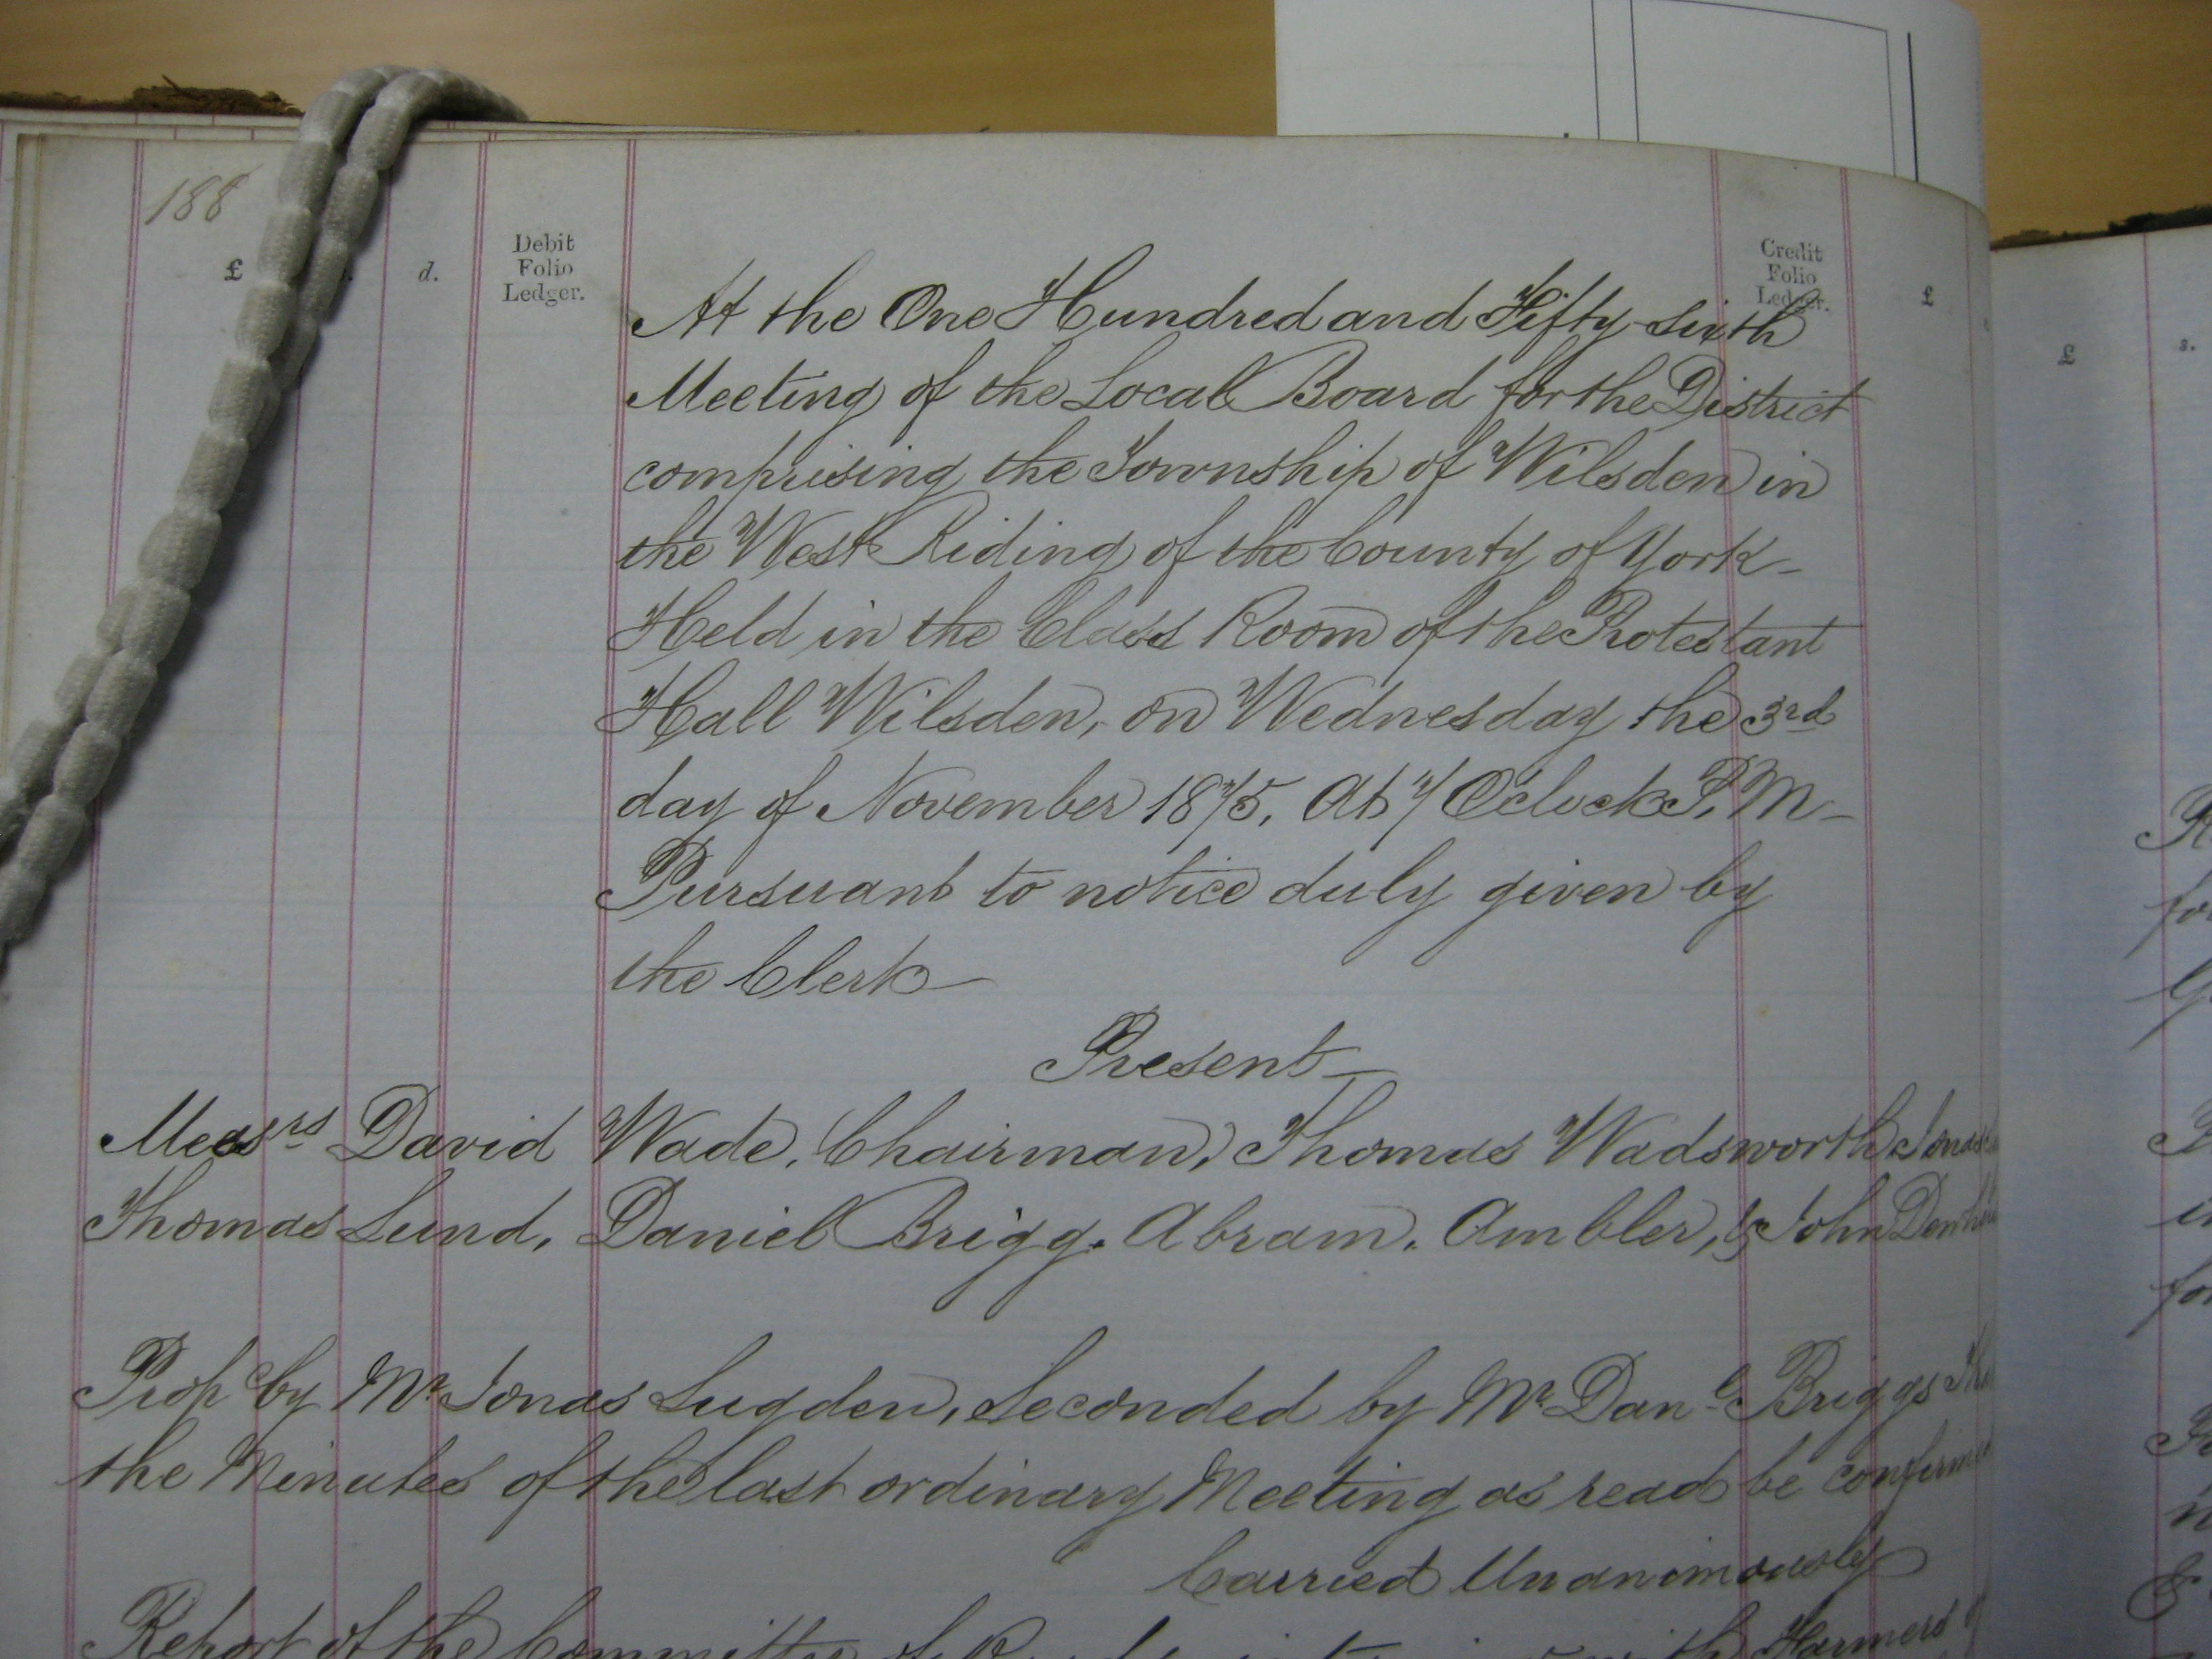 188
£ d. Debit Folio Ledger. Credit Folio Ledger. £
£ s.
At the One Hundred and Fifty-sixth
Meeting of the Local Board for the District
comprising the Township of Wilsden in
the West Riding of the County of York-
Held in the Class Room of the Protestant
Hall Wilsden, on Wednesday the 3rd
day of November 1875. At 7 Oclock P.M-
Pursuant to notice duly given by
the Clerk-
Present-
Messrs David Wade, Chairman, Thomas Wadsworth Jonas
Thomas Lund, Daniel Brigg. Abram. Ambler, & John
Prop by Mr Jonas Sugden, Seconded by Mr Danl Briggs
the Minutes of the last ordinary Meeting as read be
Carried Unanimously
Report of the Committee of with Farmers